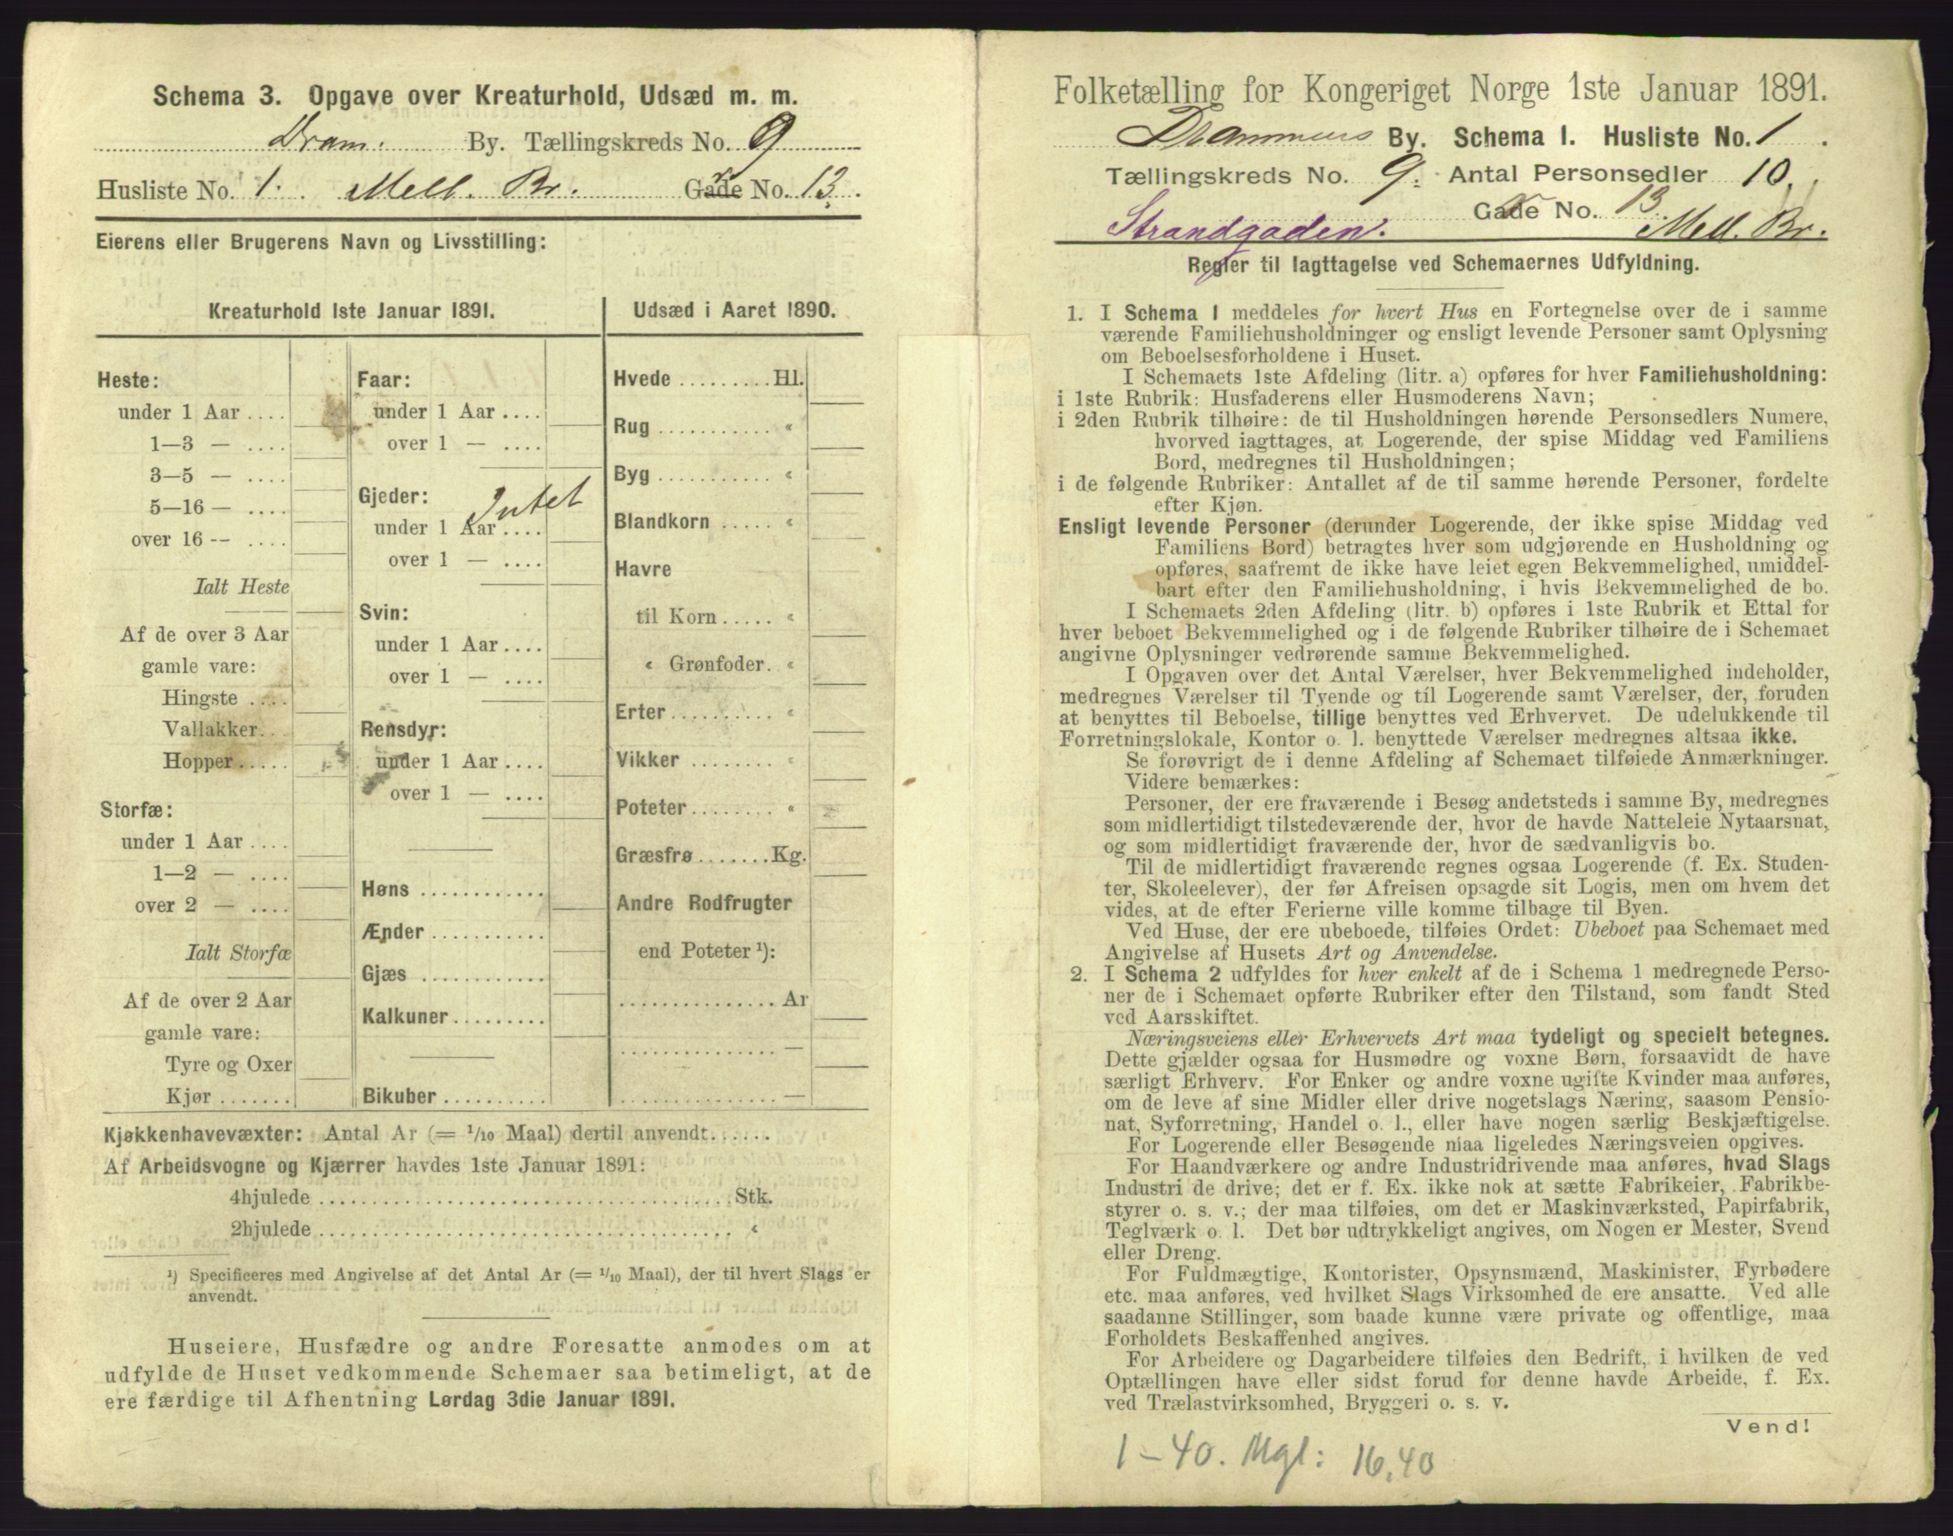 Schema 3. Opgave over Kreaturhold, Udsæd m. m.
Dram. By. Tællingskreds No. 9
Husliste No. 1. Mell. Br. Gade No. 13.
Eierens eller Brugerens Navn og Livsstilling:
Kreaturhold 1ste Januar 1891.
Heste:
under 1 Aar ....
1—3 — ....
3—5 — ....
5—16 — ....
over 16 -- ....
Ialt Heste
Af de over 3 Aar
gamle vare:
Hingste ....
Vallakker..
Hopper.....
Storfæ:
under 1 Aar ....
1—2 — ....
over 2 — ....
Ialt Storfæ
Af de over 2 Aar
gamle vare:
Tyre og Oxer
Kjør .......
Faar:
under 1 Aar ....
over 1 — ....
Gjeder:
Intet
under 1 Aar ....
over 1 — ....
Svin:
under 1 Aar ....
over 1 — ....
Rensdyr:
under 1 Aar ....
over 1 — ....
Høns ............
Ænder ...........
Gjæs ............
Kalkuner.........
Bikuber ..........
Udsæd i Aaret 1890.
Hvede .........Hl.
Rug ........... «
Byg ........... «
Blandkorn ..... «
Havre
til Korn ..... «
« Grønfoder. «
Erter.......... «
Vikker ........ «
Poteter........ «
Græsfrø .......Kg.
Andre Rodfrugter
end Poteter ¹):
............... Ar
............... —
............... —
Kjøkkenhavevæxter: Antal Ar (= 1/10 Maal) dertil anvendt......
Af Arbeidsvogne og Kjærrer havdes 1ste Januar 1891:
4hjulede ........................................ Stk.
2hjulede ........................................ «
¹) Specificeres med Angivelse af det Antal Ar (= 1/10 Maal), der til hvert Slags er
anvendt.
Huseiere, Husfædre og andre Foresatte anmodes om at
udfylde de Huset vedkommende Schemaer saa betimeligt, at de
ere færdige til Afhentning Lørdag 3die Januar 1891.
Folketælling for Kongeriget Norge 1ste Januar 1891.
Drammens By. Schema I. Husliste No. 1.
Tællingskreds No. 9. Antal Personsedler 10.
Gade No. 13.
Strandgaden. Mell. Br.
Regler til Iagttagelse ved Schemaernes Udfyldning.
1. I Schema I meddeles for hvert Hus en Fortegnelse over de i samme
værende Familiehusholdninger og ensligt levende Personer samt Oplysning
om Beboelsesforholdene i Huset.
I Schemaets 1ste Afdeling (litr. a) opføres for hver Familiehusholdning:
i 1ste Rubrik: Husfaderens eller Husmoderens Navn;
i 2den Rubrik tilhøire: de til Husholdningen hørende Personsedlers Numere,
hvorved iagttages, at Logerende, der spise Middag ved Familiens
Bord, medregnes til Husholdningen;
i de følgende Rubriker: Antallet af de til samme hørende Personer, fordelte
efter Kjøn.
Ensligt levende Personer (derunder Logerende, der ikke spise Middag ved
Familiens Bord) betragtes hver som udgjørende en Husholdning og
opføres, saafremt de ikke have leiet egen Bekvemmelighed, umiddel-
bart efter den Familiehusholdning, i hvis Bekvemmelighed de bo.
I Schemaets 2den Afdeling (litr. b) opføres i 1ste Rubrik et Ettal for
hver beboet Bekvemmelighed og i de følgende Rubriker tilhøire de i Schemaet
angivne Oplysninger vedrørende samme Bekvemmelighed.
I Opgaven over det Antal Værelser, hver Bekvemmelighed indeholder,
medregnes Værelser til Tyende og til Logerende samt Værelser, der, foruden
at benyttes til Beboelse, tillige benyttes ved Erhvervet. De udelukkende til
Forretningslokale, Kontor o. l. benyttede Værelser medregnes altsaa ikke.
Se forøvrigt de i denne Afdeling af Schemaet tilføiede Anmærkninger.
Videre bemærkes:
Personer, der ere fraværende i Besøg andetsteds i samme By, medregnes
som midlertidigt tilstedeværende der, hvor de havde Natteleie Nytaarsnat,
og som midlertidigt fraværende der, hvor de sædvanligvis bo.
Til de midlertidigt fraværende regnes ogsaa Logerende (f. Ex. Studen-
ter, Skoleelever), der før Afreisen opsagde sit Logis, men om hvem det
vides, at de efter Ferierne ville komme tilbage til Byen.
Ved Huse, der ere ubeboede, tilføies Ordet: Ubeboet paa Schemaet med
Angivelse af Husets Art og Anvendelse.
2. I Schema 2 udfyldes for hver enkelt af de i Schema 1 medregnede Perso-
ner de i Schemaet opførte Rubriker efter den Tilstand, som fandt Sted
ved Aarsskiftet.
Næringsveiens eller Erhvervets Art maa tydeligt og specielt betegnes.
Dette gjælder ogsaa for Husmødre og voxne Børn, forsaavidt de have
særligt Erhverv. For Enker og andre voxne ugifte Kvinder maa anføres,
om de leve af sine Midler eller drive nogetslags Næring, saasom Pensio-
nat, Syforretning, Handel o. l., eller have nogen særlig Beskjæftigelse.
For Logerende eller Besøgende maa ligeledes Næringsveien opgives.
For Haandværkere og andre Industridrivende maa anføres, hvad Slags
Industri de drive; det er f. Ex. ikke nok at sætte Fabrikeier, Fabrikbe-
styrer o. s. v.; der maa tilføies, om det er Maskinværksted, Papirfabrik,
Teglværk o. l. Det bør udtrykkeligt angives, om Nogen er Mester, Svend
eller Dreng.
For Fuldmægtige, Kontorister, Opsynsmænd, Maskinister, Fyrbødere
etc. maa anføres, ved hvilket Slags Virksomhed de ere ansatte. Ved alle
saadanne Stillinger, som baade kunne være private og offentlige, maa
Forholdets Beskaffenhed angives.
For Arbeidere og Dagarbeidere tilføies den Bedrift, i hvilken de ved
Optællingen have eller sidst forud for denne havde Arbeide, f. Ex.
ved Trælastvirksomhed, Bryggeri o. s. v.
Vend!
1—40. Mgl: 16,40